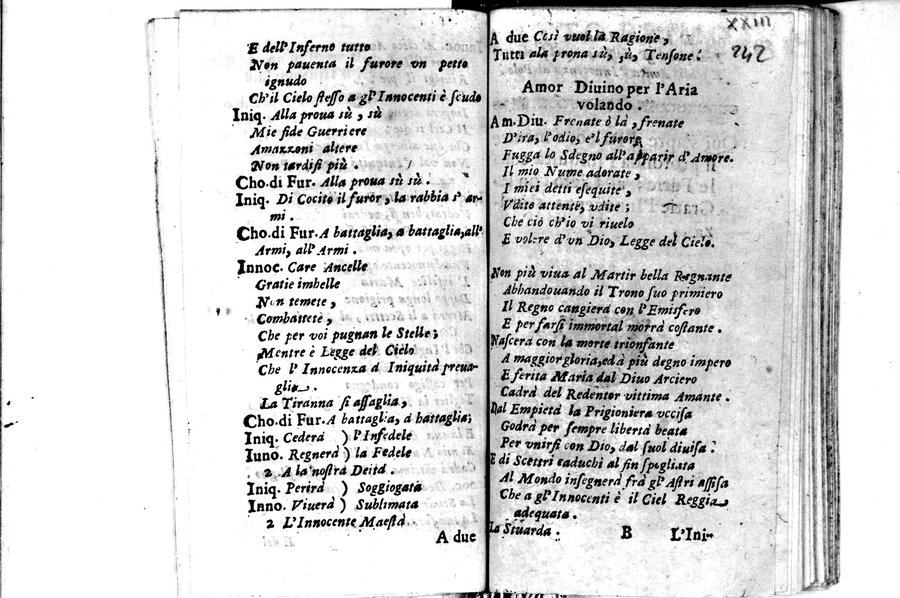 E dell'Inferno tutto
Non pauenta il furore vn petto
ignudo
Ch'il Cielo stesso a gl'Innocenti è scudo
Iniq. Alla proua sù, sù
Mie fide Guerriere
Amazzoni altere
Non tardisi più.
Cho.di Fur. Alla proua sù sù.
Iniq. Di Cocito il furor, la rabbia s'ar-
mi.
Cho.di Fur. A battaglia, a battaglia, all'
Armi, all'Armi.
Innoc. Care Ancelle
Gratie imbelle
Non temete,
Combattete,
Che per voi pugnan le Stelle;
Mentre è Legge del Cielo
Che l'Innocenza d Iniquità preua-
glia.
La Tiranna si assaglia,
Cho.di Fur. A battaglia, a battaglia;
Iniq. Cederà ) l'Infedele
Iuno. Regnerà ) la Fedele
2 A la nostra Deità.
Iniq. Perirà ) Soggiogata
Inno. Viuerà ) Sublimata
2 L'Innocente Maestà.
A due
XXIII
242
A due Cesì vuol la Ragione,
Tutti ala proua sù, sù, Tensone.
Amor Diuino per l'Aria
volando.
Am.Diu. Frenate ò là, frenate
D'ira, l'odio, e'l furore
Fugga lo Sdegno all'apparir d'Amore.
Il mio Nume adorate,
I miei detti esequite,
Vdite attente, vdite;
Che ciò ch'io vi riuelo
E volere d'vn Dio, Legge del Cielo.
Non più viua al Martir bella Regnante
Abbandouando il Trono suo primiero
Il Regno cangierà con l'Emisfero
E per farsi immortal morrà costante.
Nascerà con la morte trionfante
A maggior gloria, ed à più degno impero
E ferita Maria dal Diuo Arciero
Cadrà del Redentor vittima Amante.
Dal Empietà la Prigioniera vccisa
Godrà per sempre libertà beata
Per vnirsi con Dio, dal suol diuisa.
E di Scettri caduchi al fin spogliata
Al Mondo insegnerà frà gl'Astri assisa
Che a gl'Innocenti è il Ciel Reggia
adequata.
La Stuarda. B L'Ini-